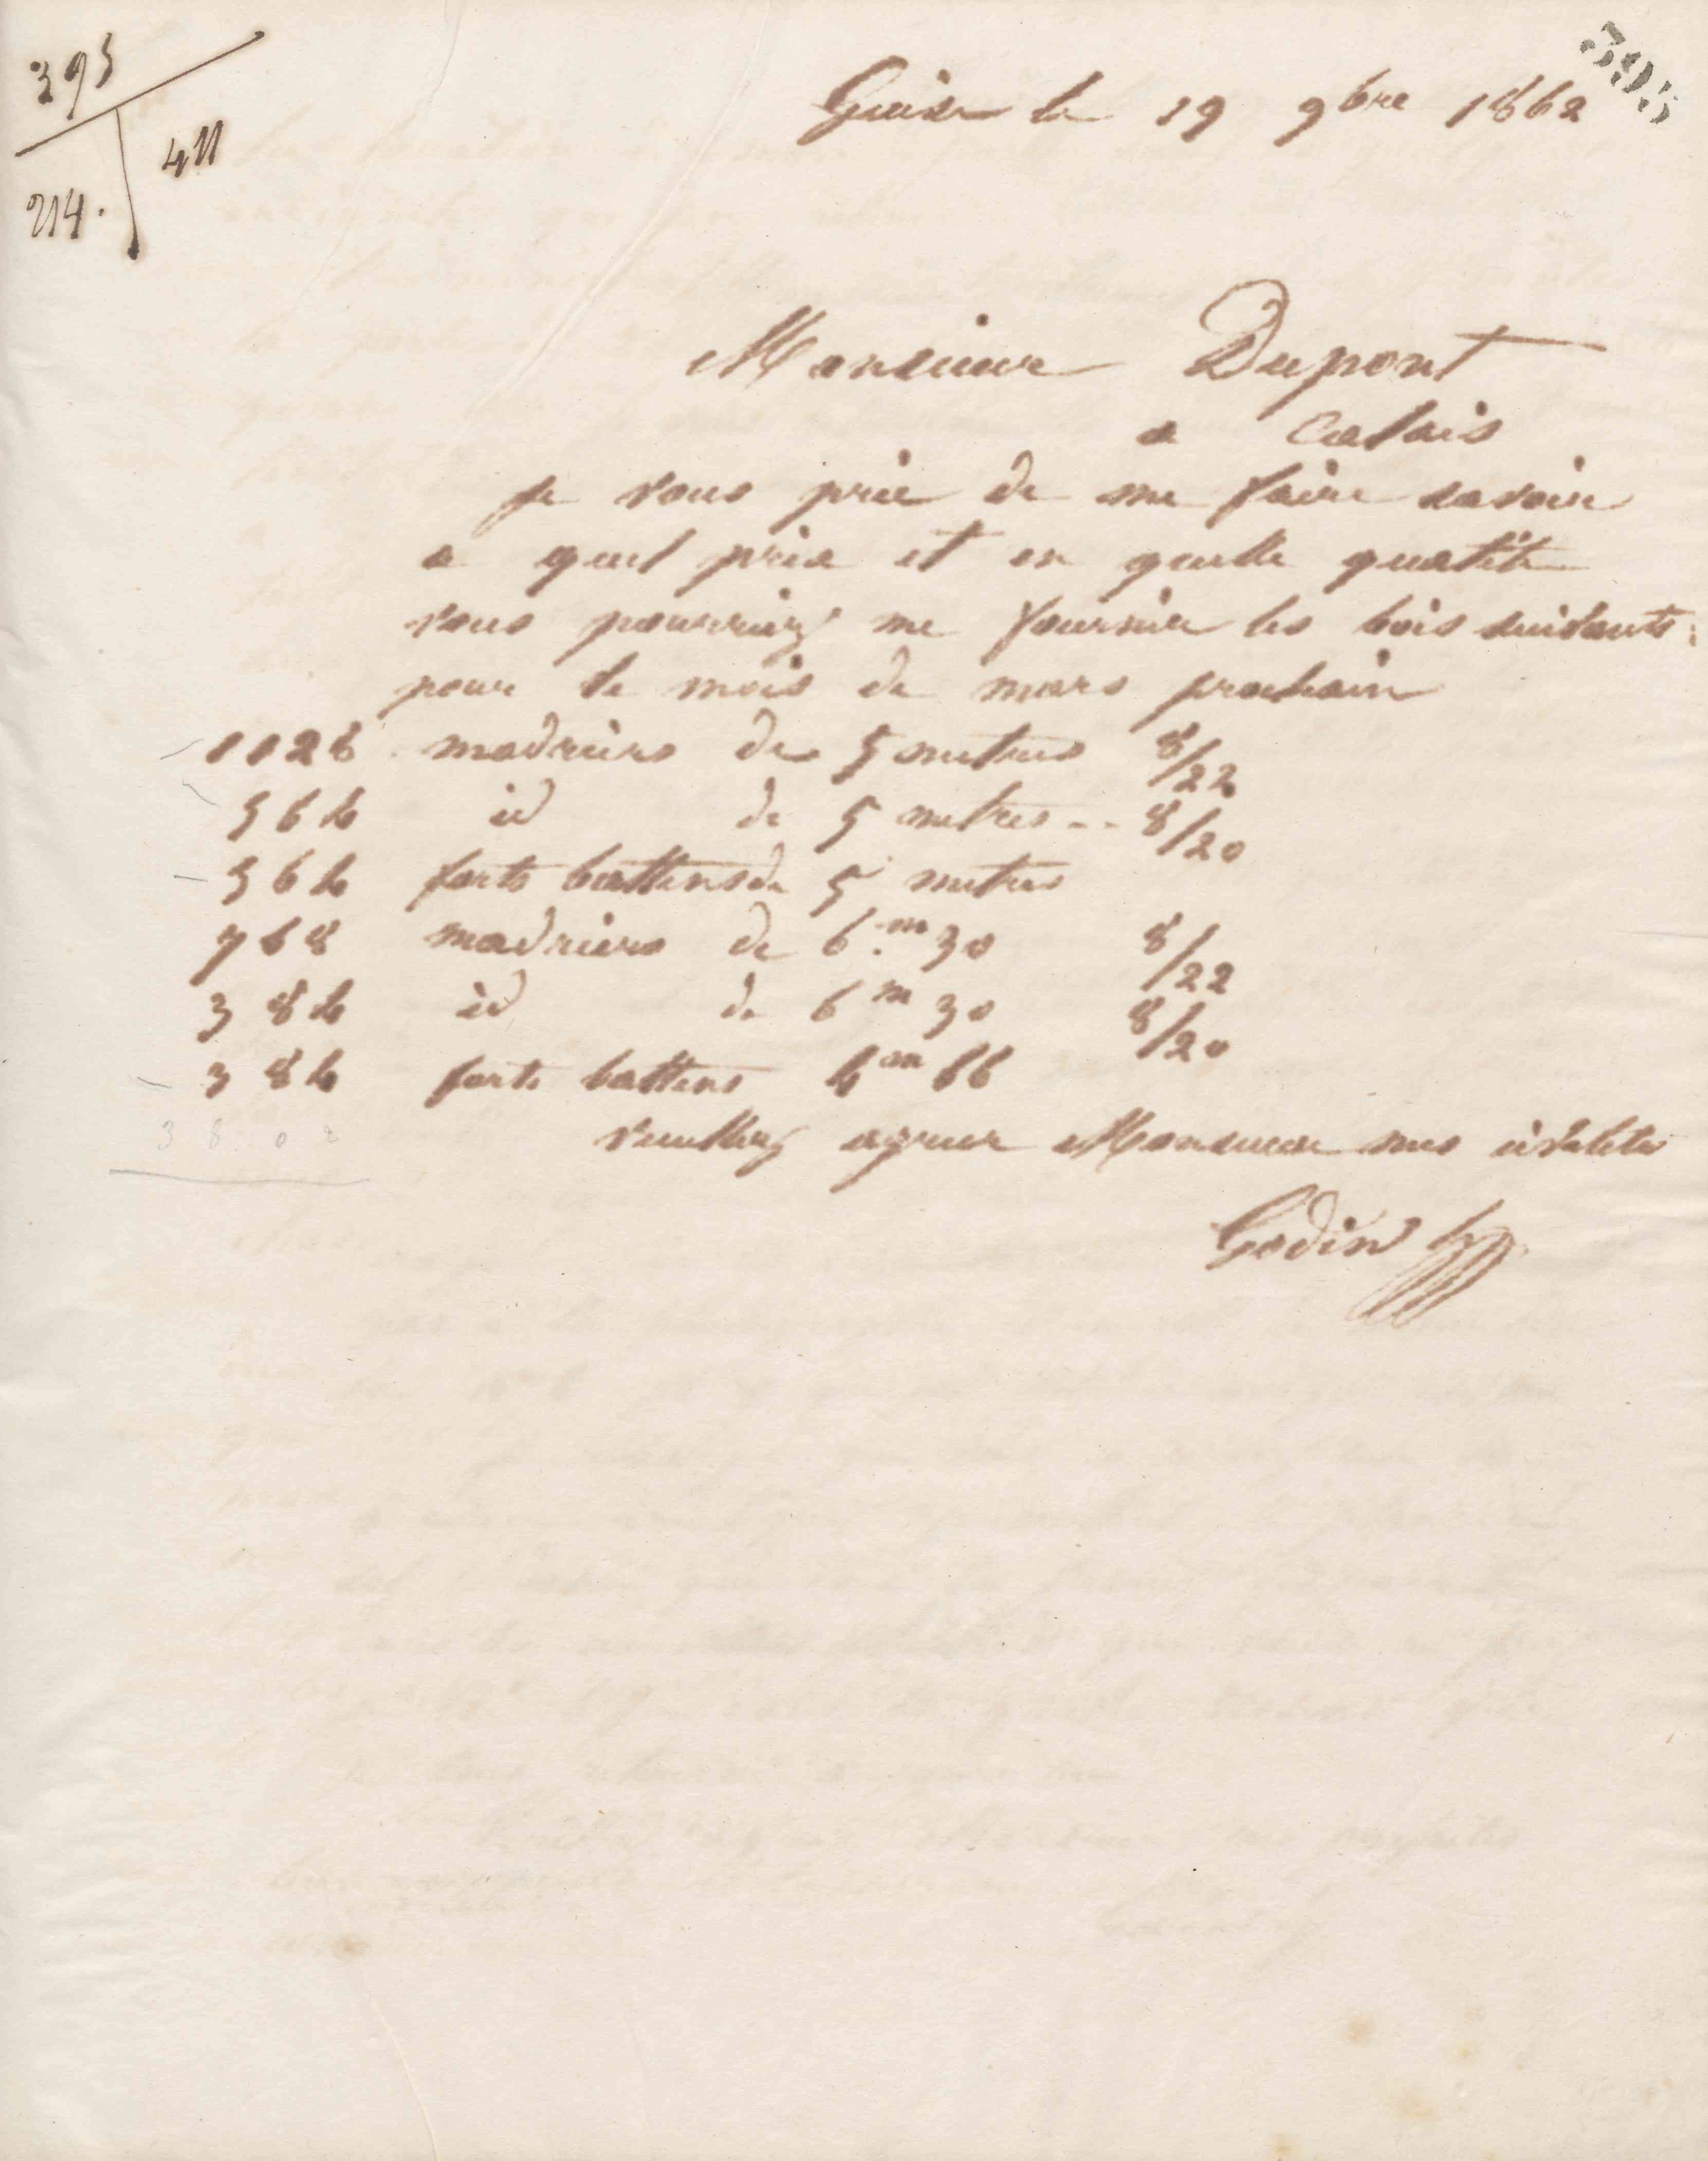 395
411
214.
395
Guise le 19 9bre 1862
Monsieur Dupont
a Calais
Je vous prie de me faire savoir
a quel prix et en quelle quatité
vous pourriez me fournir les bois suivants :
pour le mois de mars prochain
1128 madriers de 5 metres 8/22
564 id de 5 metres -- 8/20
564 forts battens de 5 metres
768 madriers de 6.m 30 8/22
384 id de 6m 30 8/20
384 forts battens 4m 66
38 02
veuillez agreer Monsieur mes
Godin